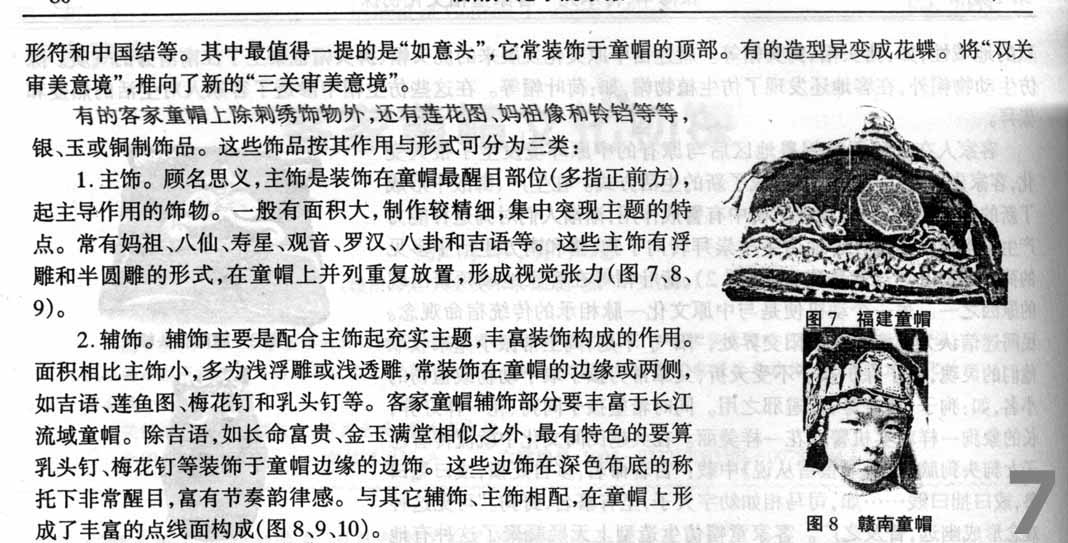 形符和中国结等。其中最值得一提的是“如意头”,它常装饰于童帽的顶部。有的造型异变成花蝶。将“双关
审美意境”,推向了新的“三关审美意境”。
有的客家童帽上除刺绣饰物外,还有莲花图、妈祖像和铃铛等等,
银、玉或铜制饰品。这些饰品按其作用与形式可分为三类:
1.主饰。顾名思义,主饰是装饰在童帽最醒目部位(多指正前方),
起主导作用的饰物。一般有面积大,制作较精细,集中突现主题的特
点。常有妈祖、八仙、寿星、观音、罗汉、八卦和吉语等。这些主饰有浮
雕和半圆雕的形式,在童帽上并列重复放置,形成视觉张力(图7、8、
9)。
2.辅饰。辅饰主要是配合主饰起充实主题,丰富装饰构成的作用。
面积相比主饰小,多为浅浮雕或浅透雕,常装饰在童帽的边缘或两侧,
如吉语、莲鱼图、梅花钉和乳头钉等。客家童帽辅饰部分要丰富于长江
流域童帽。除吉语,如长命富贵、金玉满堂相似之外,最有特色的要算
乳头钉、梅花钉等装饰于童帽边缘的边饰。这些边饰在深色布底的称
托下非常醒目,富有节奏韵律感。与其它辅饰、主饰相配,在童帽上形
成了丰富的点线面构成(图8、9、10)。
图7 福建童帽
图8 赣南童帽
7